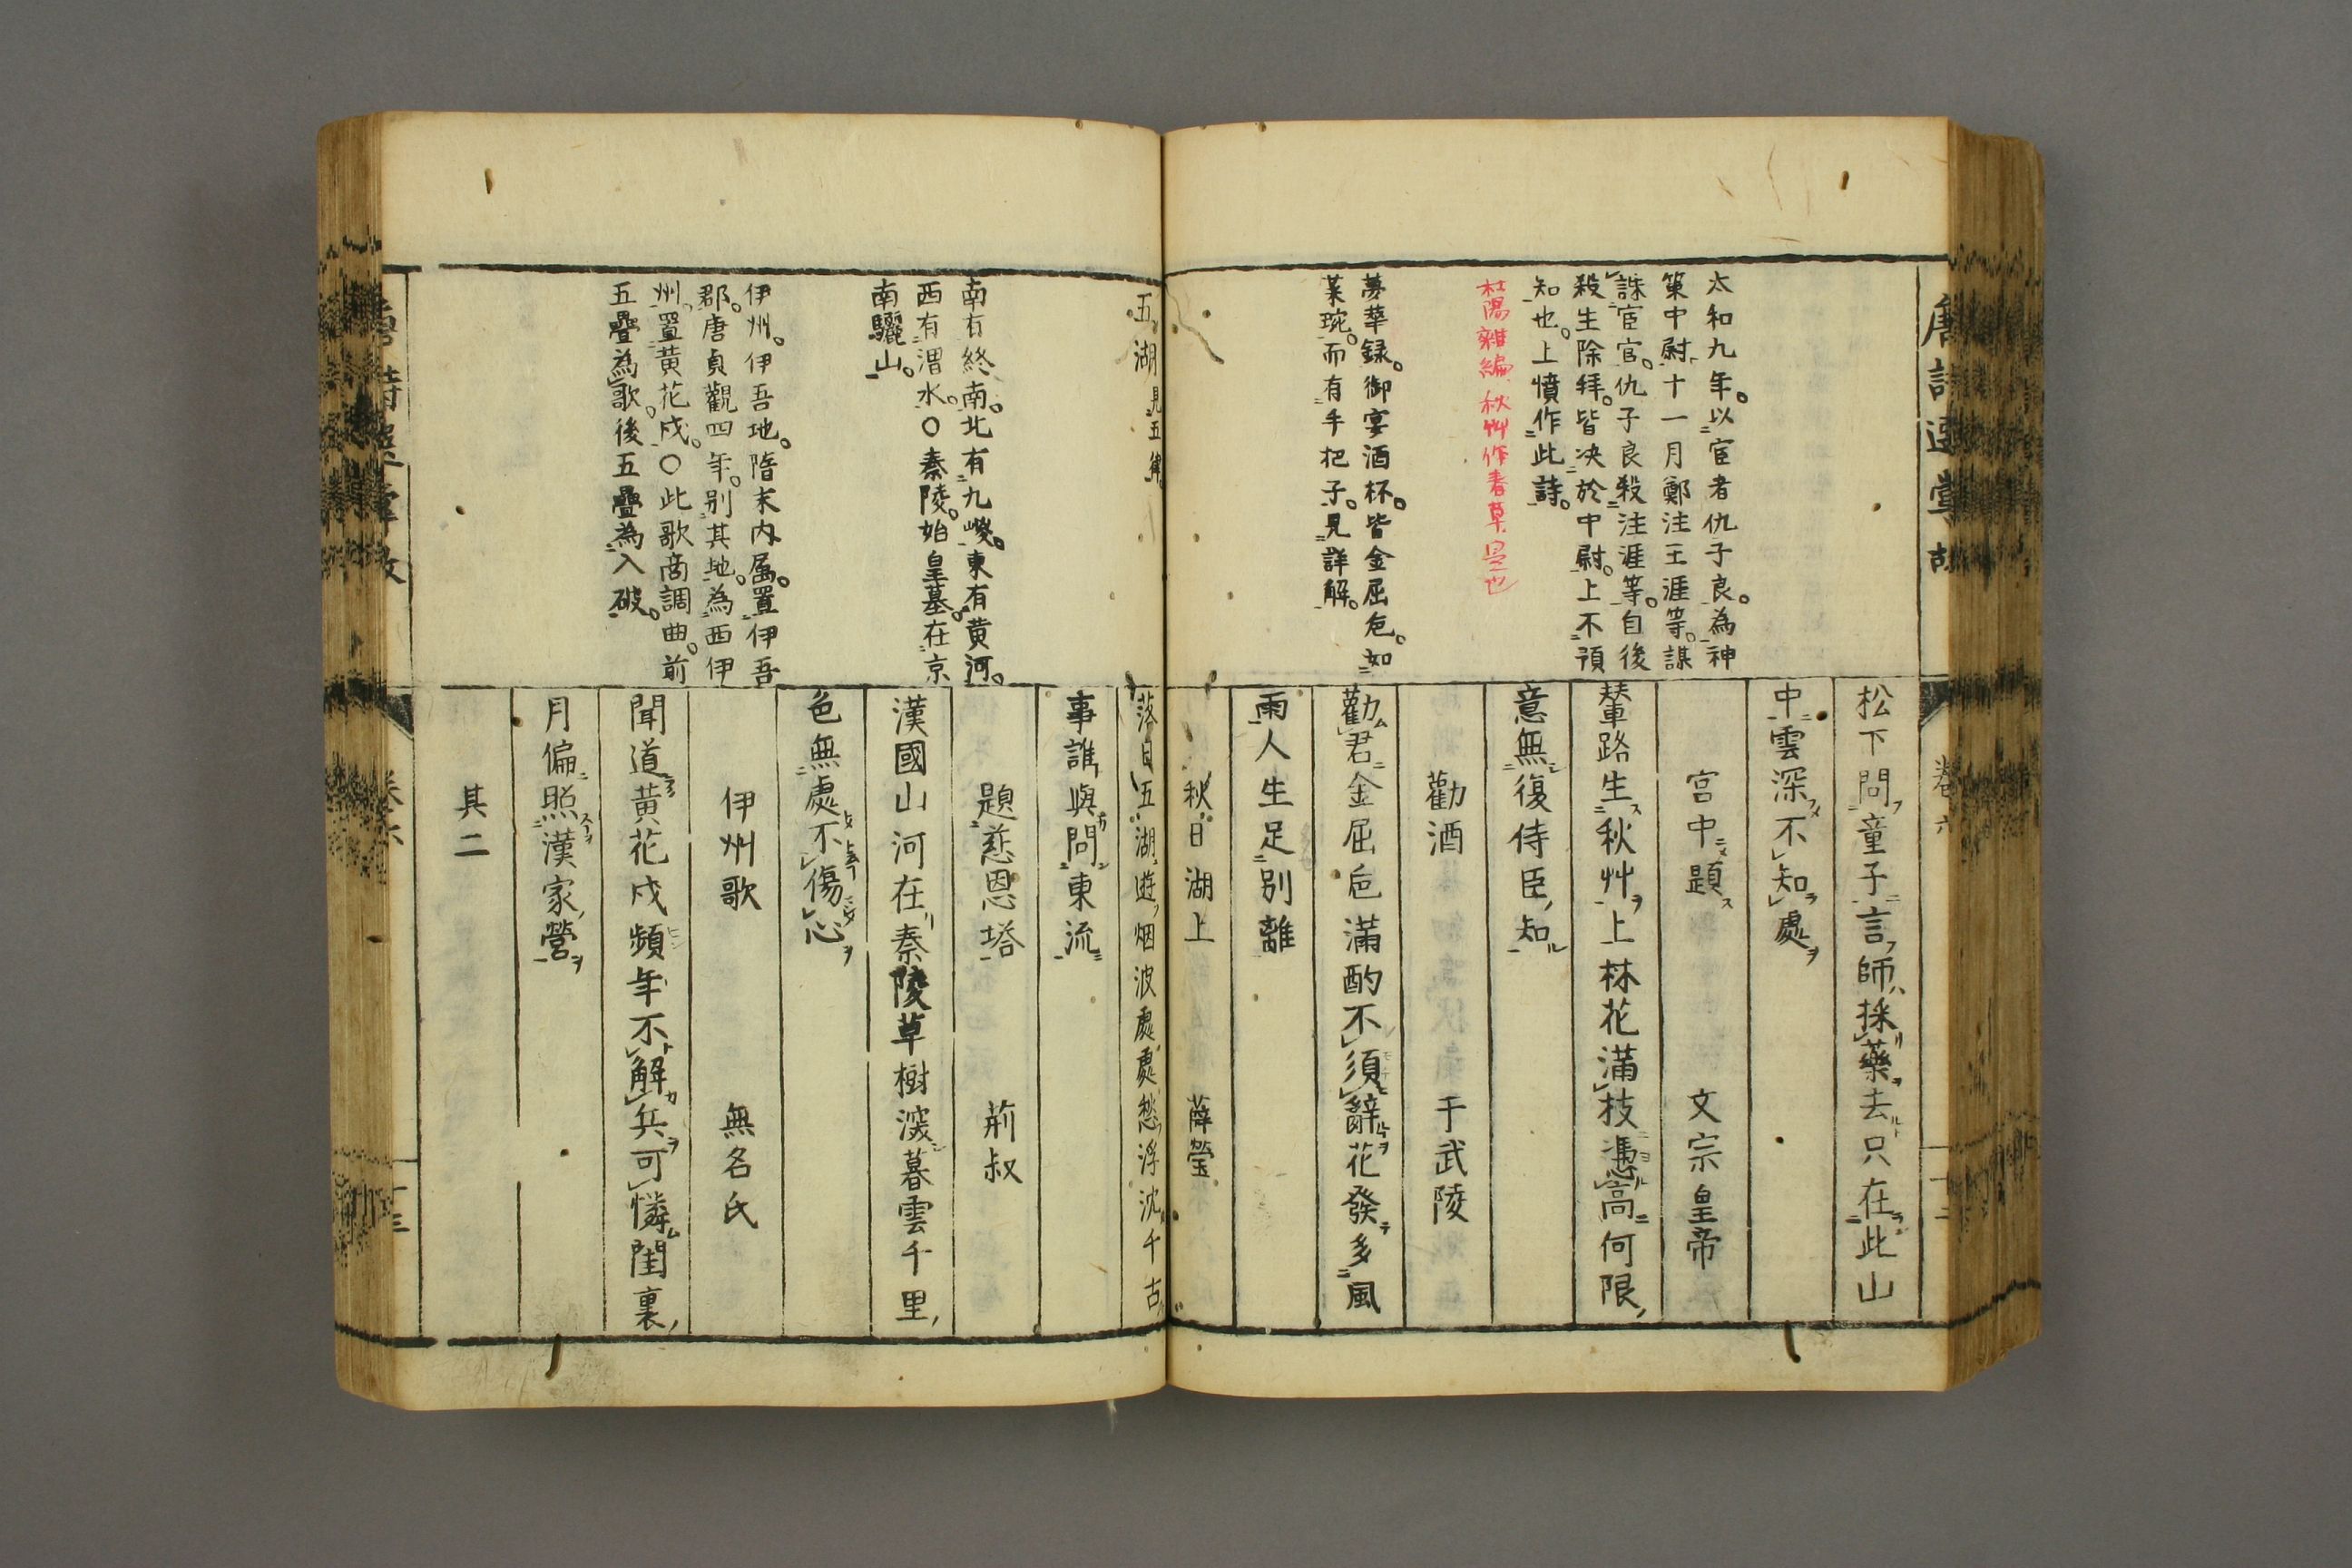 松下問童子言師採藥去只在此山
中雲深不知處
宮中題　文宗皇帝
輦路生秋艸上林花滿枝憑高何限
意無復侍臣知
勸酒　于武陵
勸君金屈卮滿酌不須辭花發多風
雨人生足別離
秋日湖上　薛瑩
太和九年。以宦者仇子良。為神
策中尉。十一月鄭注王涯等。謀
誅宦官。仇子良殺注涯等。自後
殺生除拜。皆决於中尉。上不預
知也。上憤作此詩。
杜陽雜編秋艸作春草是也
夢華録。御宴酒杯。皆金屈卮。如
菜琬。而有手把子。見詳解。
卷六
落日五湖遊烟波處處愁浮沈千古
事誰與問東流
題慈恩塔　荊叔
漢國山河在秦陵草樹深暮雲千里
色無處不傷心
伊州歌　無名氏
聞道黃花戍頻年不解兵可憐閨裏
月偏照漢家營
其二
五湖見五律。
南有終南。北有九嵕。東有黄河。
西有渭水。〇秦陵。始皇墓。在京
南驪山。
伊州。伊吾地。隋末内属。置伊吾
郡。唐貞觀四年。别其地。為西伊
州。置黄花戍。〇此歌商調曲。前
五疊為歌。後五疊為入破。
十三